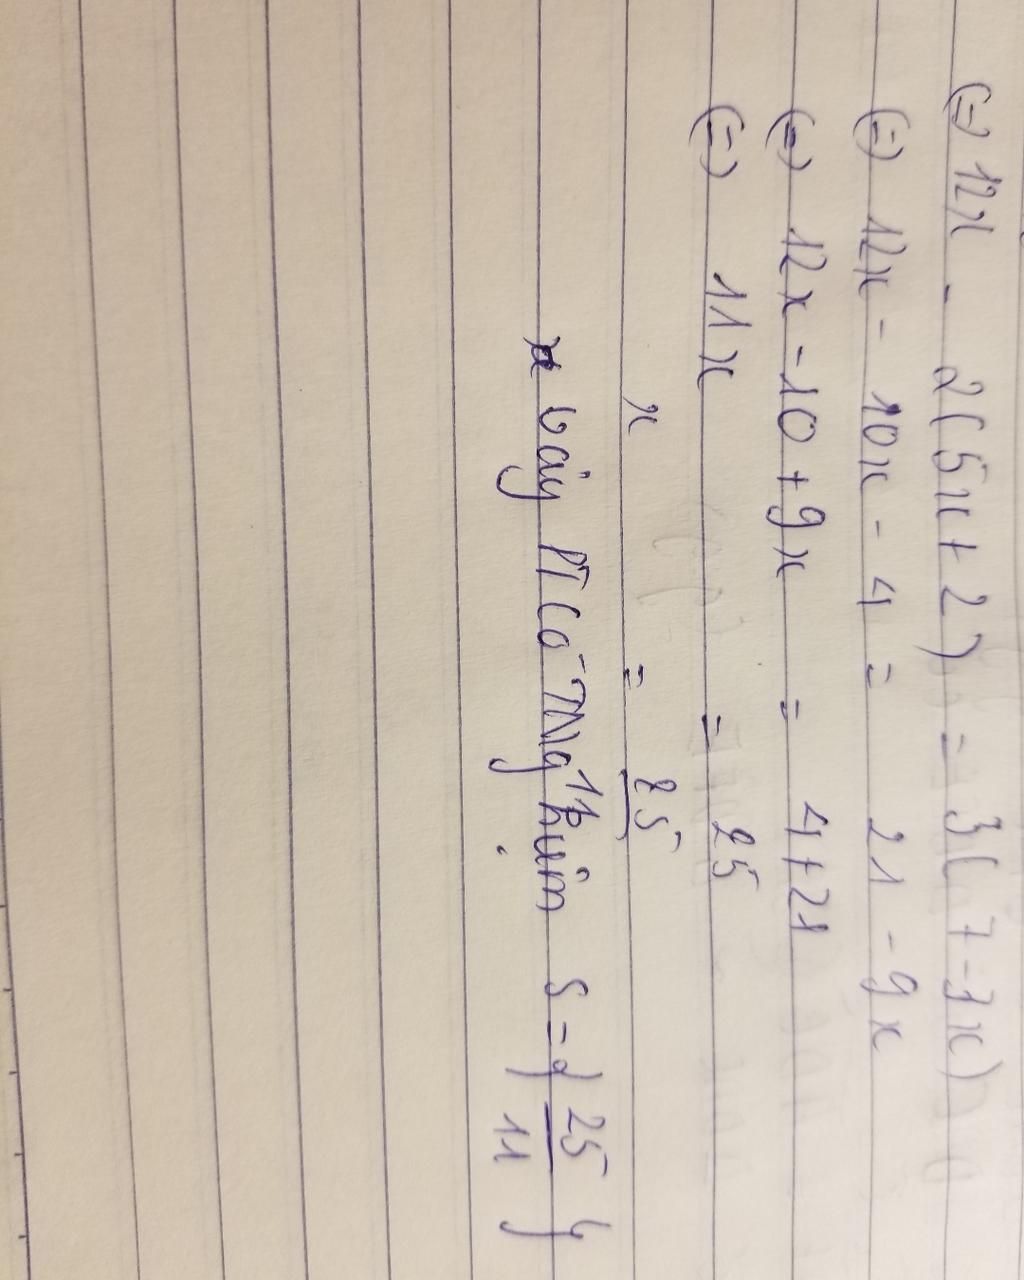 (=) 12x - 2(5x+2) = 3(7-3x)
(=) 12x - 10x - 4 = 21 - 9x
(=) 12x - 10 + 9x = 4+21
(=) 11x = 25
x = 25/11
vậy PT có Ng hiệm S = { 25/11 }